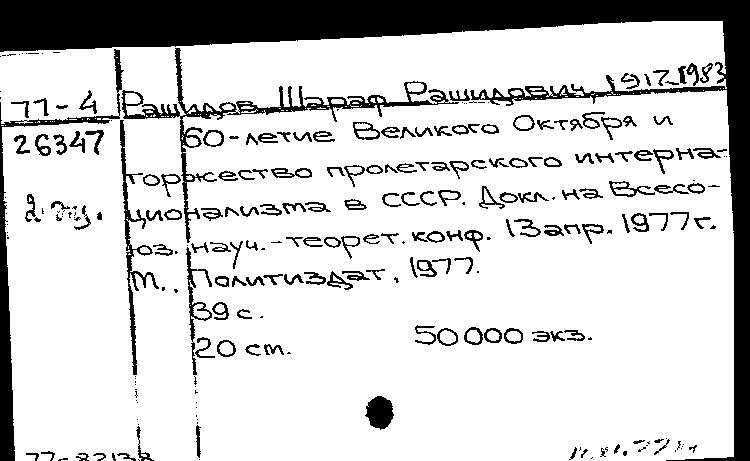 77-4 Рашидов, Шараф Рашидович, 1917-1983
26347 60-летие Великого Октября и
торжество пролетарского интерна-
2 экз. ционализма в СССР. Докл. на Всесо-
юз. науч.-теорет. конф. 13 апр. 1977 г.
М., Политиздат, 1977.
39 с.
20 см. 50 000 экз.
77-82138